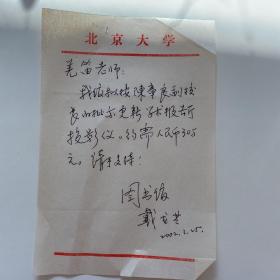 北京大学
羌笛老师:
我馆拟按陈章良副校
长的批示更新学术报告厅
投影仪。约需人民币30万
元。请予支持!
图书馆
戴龙基
2002.2.25.